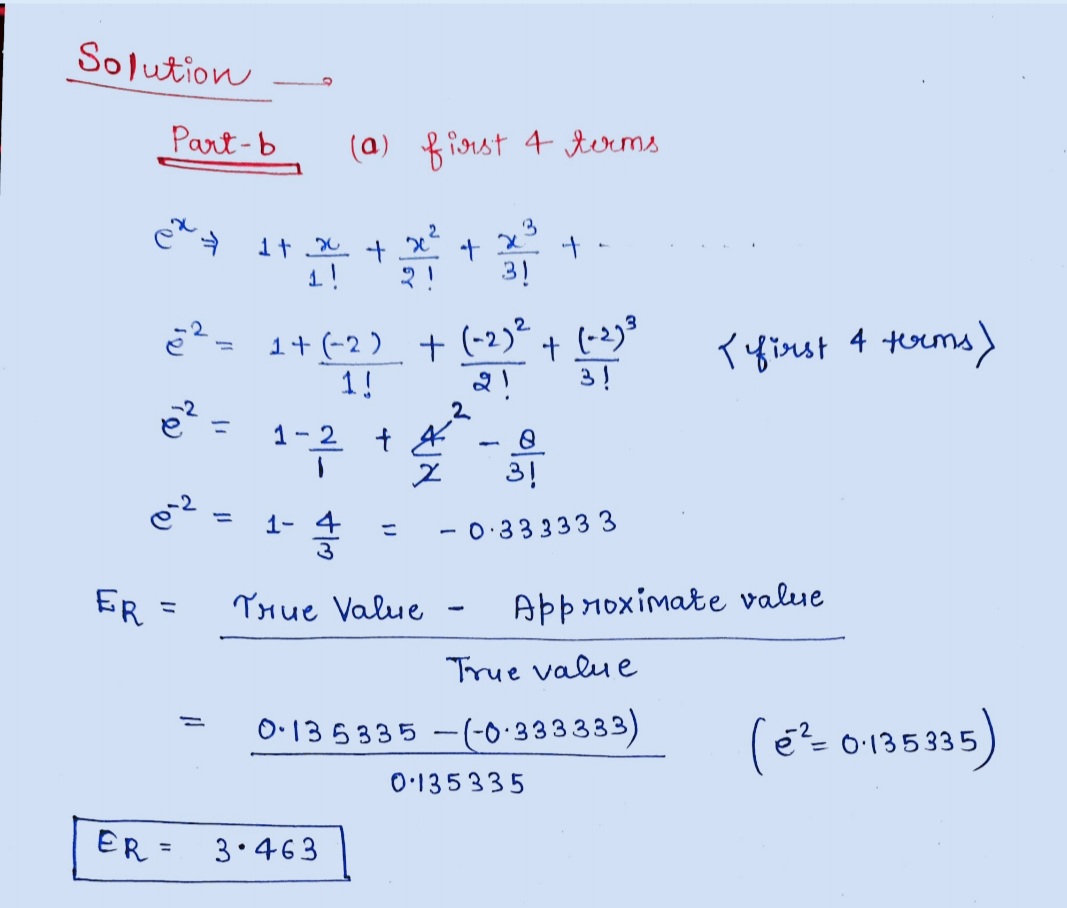 Solution →
Part-b (a) first 4 terms
e^x ⇒ 1 + x/1! + x²/2! + x³/3! + - . . . .
e^-2 = 1 + (-2)/1! + (-2)²/2! + (-2)³/3! {first 4 terms}
e^-2 = 1 - 2/1 + 4/2 2 - 8/3!
e^-2 = 1 - 4/3 = -0.333333
ER = True Value - Approximate value / True value
= 0.135335 - (-0.333333) / 0.135335 (e^-2 = 0.135335)
ER = 3.463